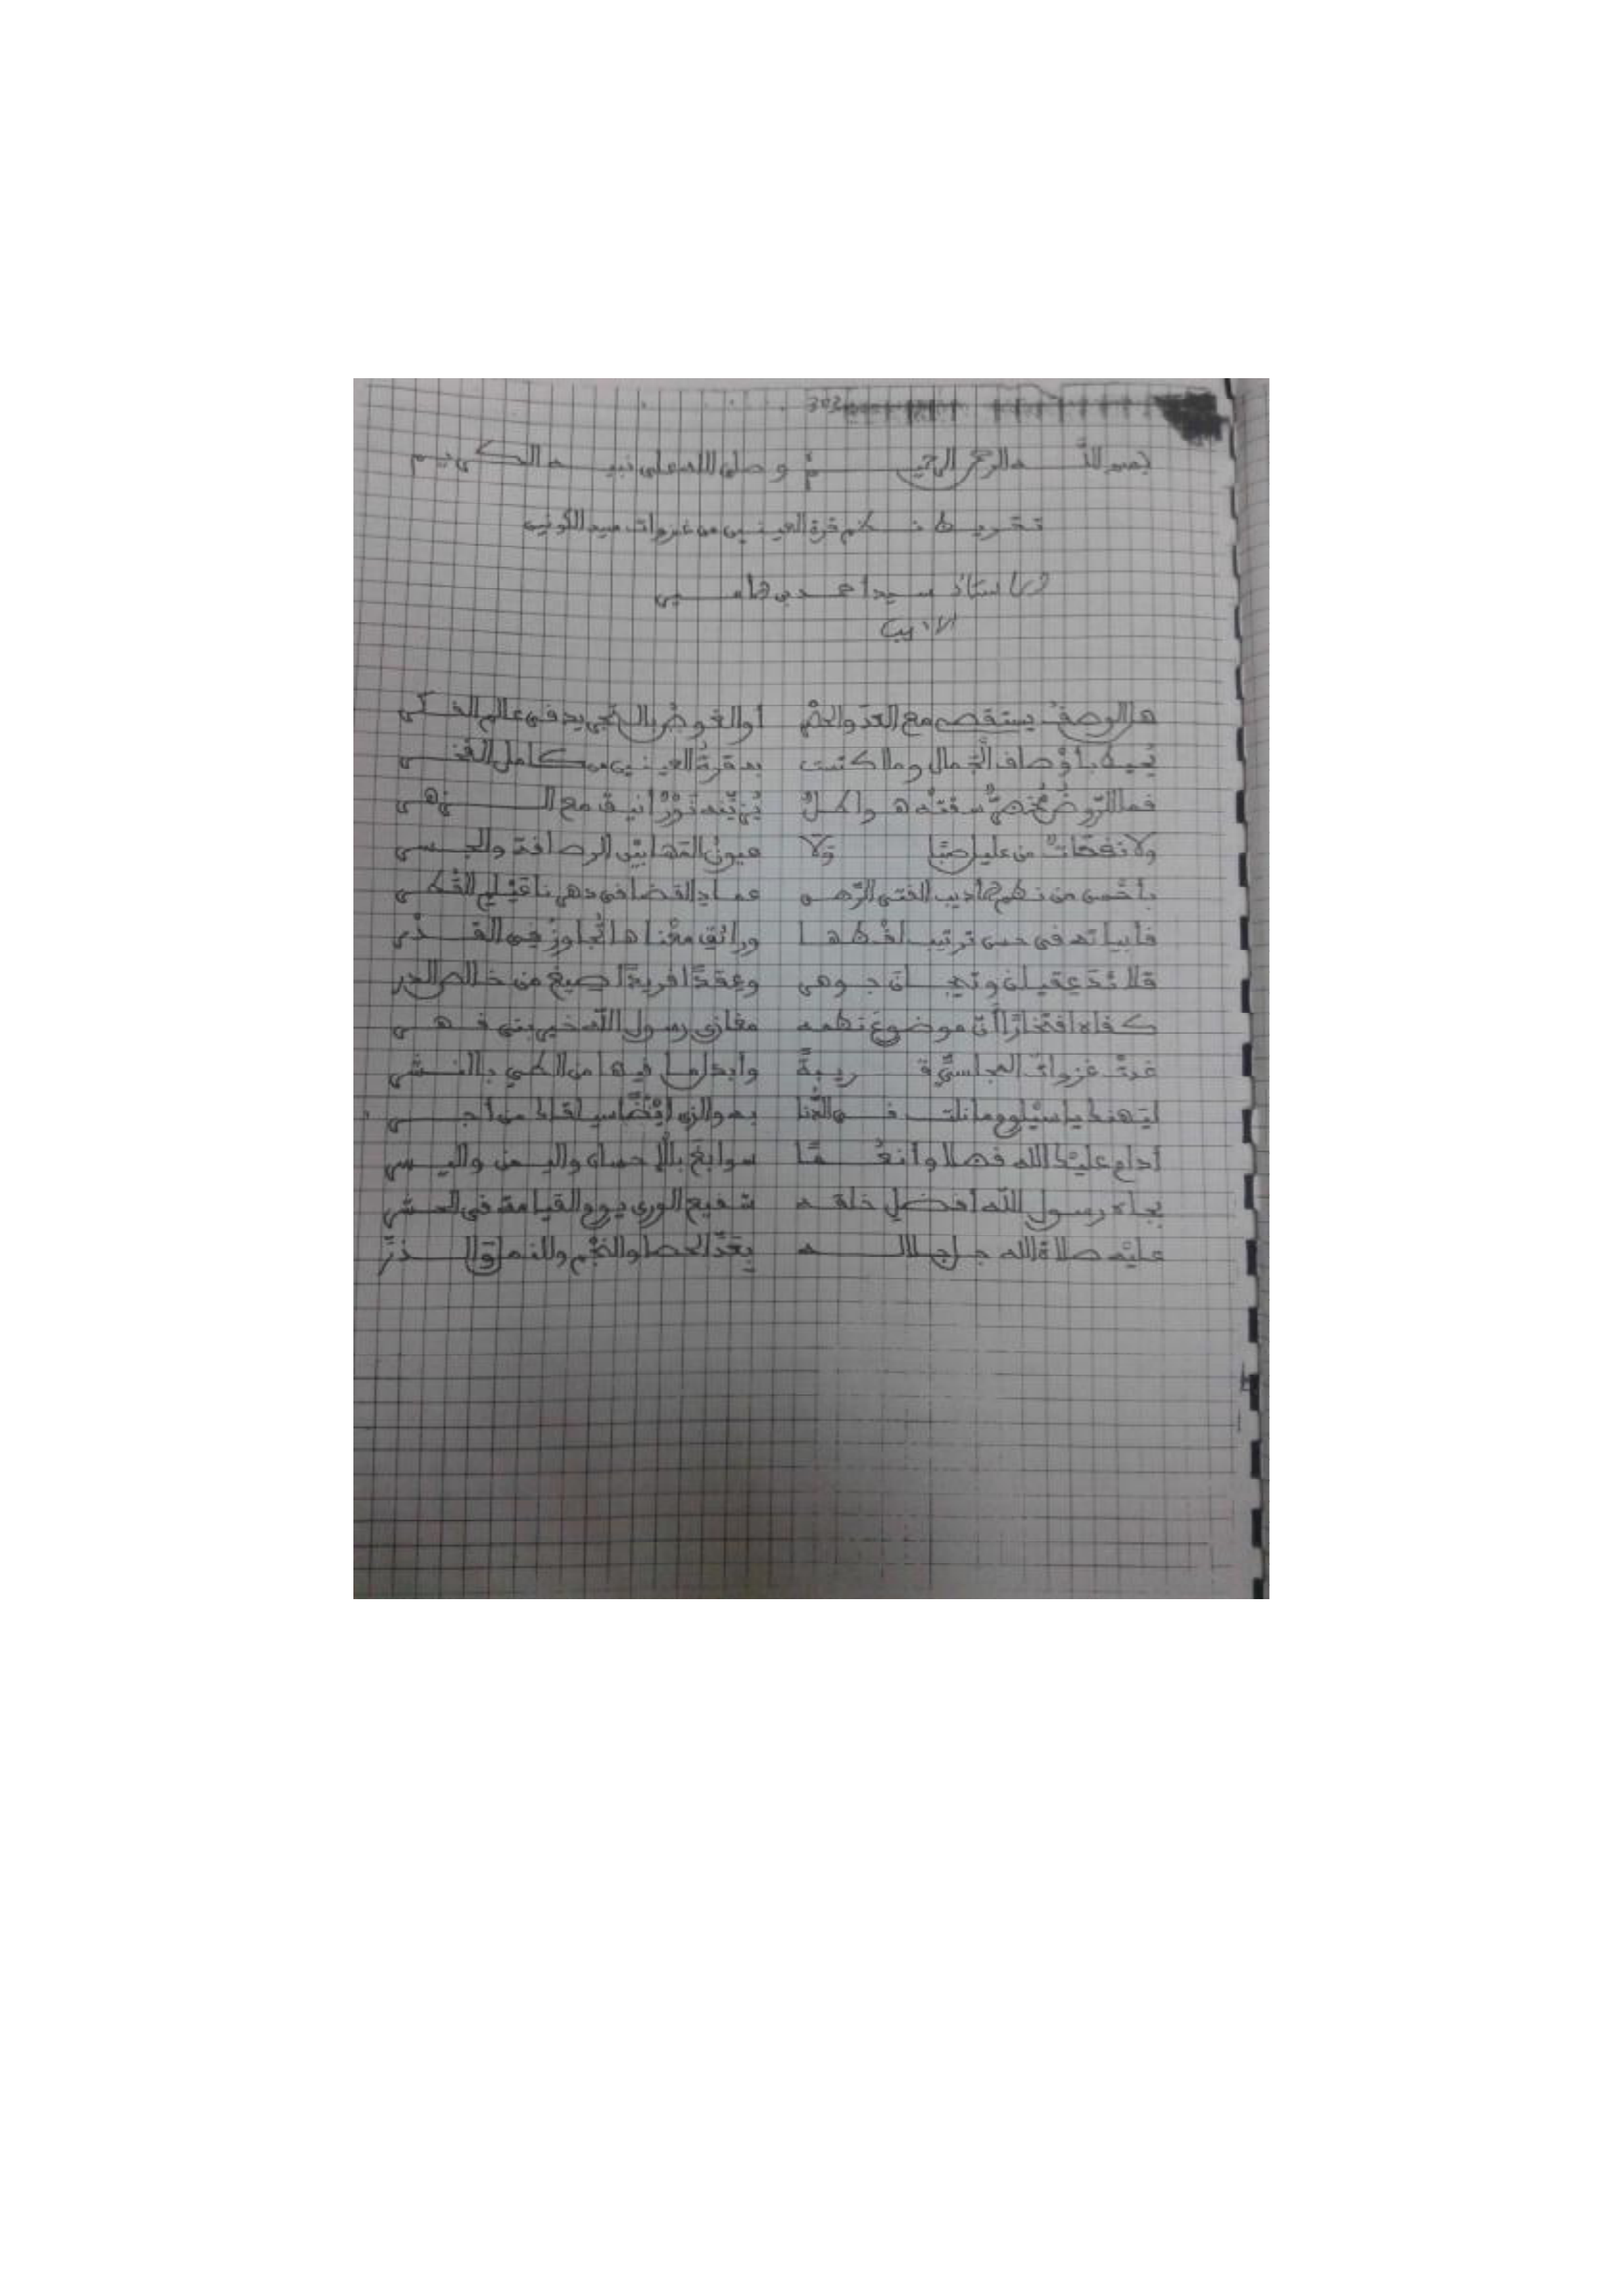 بسم اللَّه الرحمن الرحيم وصلى الله على نبيه الكريم
تقريظ نظم قرة العينين من غزوات سيد الكونين
للأستاذ سيد احمد بن
الأديب
هل الوصفُ يستقصى مع العدّ والحصْر أو الغوصُ بالتجريد في عالم الفكر
يُحيط بأوْصاف الْجمال وما اكتست به قرةُ العينين من كامل الفخر
فما الرّوضُ مُخضرٌّ سقتْه هواطلٌ يُزيّنه نَوْرٌ أنيق مع الزهر
ولا نفحاتٌ من عليل صَبًا وَلَا عيونُ المها بيْن الرصافة والجسر
بأحْسن من نظم الأديب الفتى عماد القضا في دهرنا
فأبياته في حسن ترتيب لفْظها ورائق معْناها تُجاوزُ في القدْر
قلائدَ عِقيان وتيجان جوهر وعِقدًا فريدًا صيغ من خالص الدر
كفاه افتخارًا أنّ موضوعَ نظمه مغازي رسول اللَّه خير بني فهر
غدتْ غزوات المجلسيِّ قريبةً وأبدل ما فيها من الطي بالنشر
ليهنك يا ما نلت في الدّنا به والذي أيْضًا سيلقاك من أجر
أدام عليْك الله فضلا وأنعُمًا سوابغَ بالإحسان واليمن واليسر
بجاه رسول اللَّه أفضل خلقه شفيع الورى يوم القيامة في الحشر
عليْه صلاة الله جل جلاله بِعَدّ الحصا والنجْم والنمل والذرّ